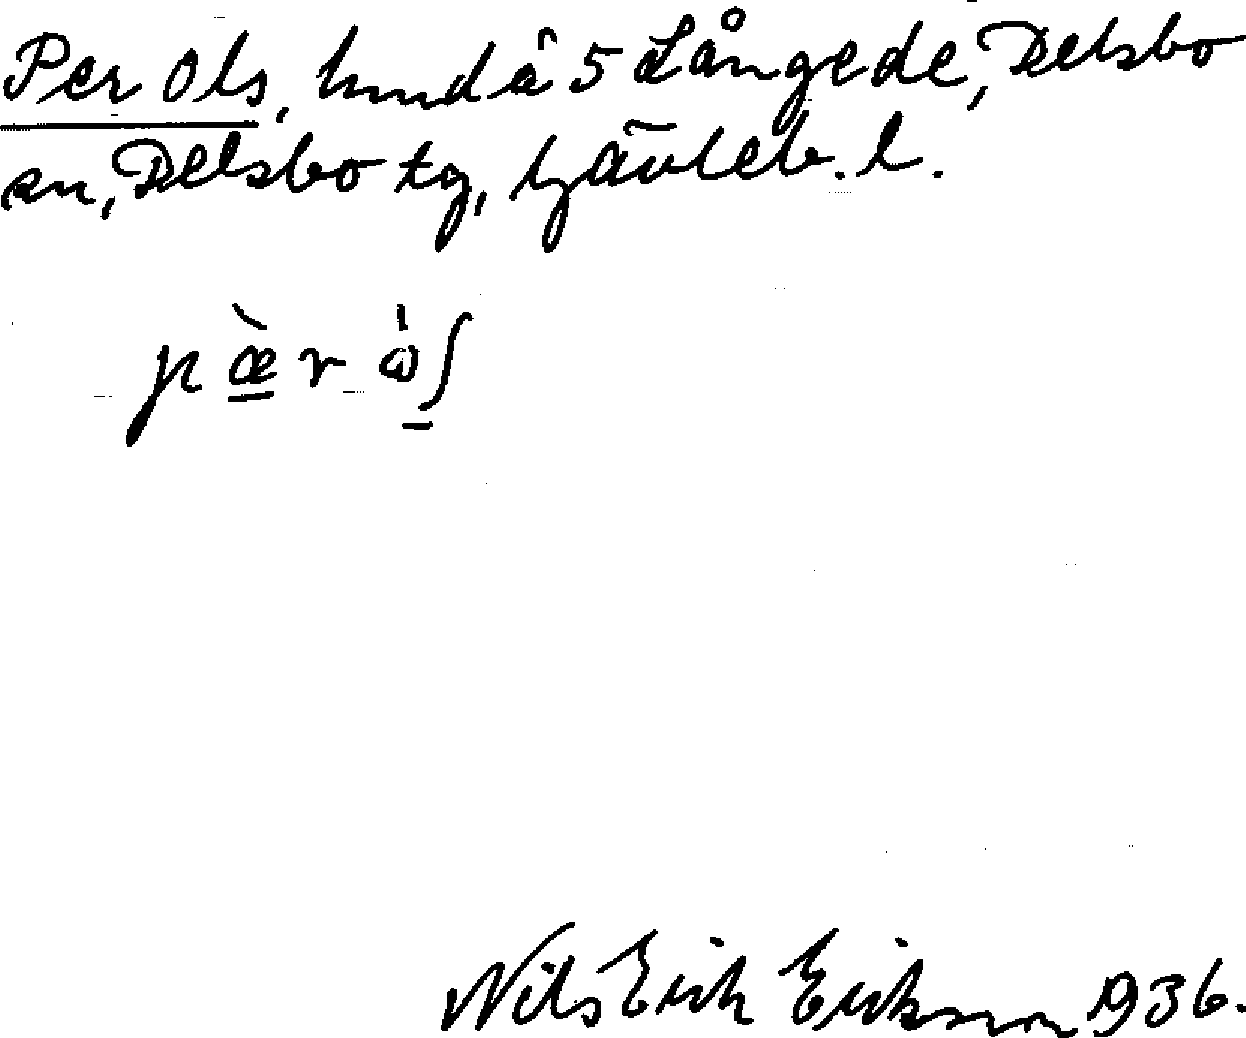 Per Ols, hmd å 5 Långede, Delsbo
sn, Delsbo tg, Gävleb. l.
pæ̀r ὼʃ
Nils Erik Erikson 1936.